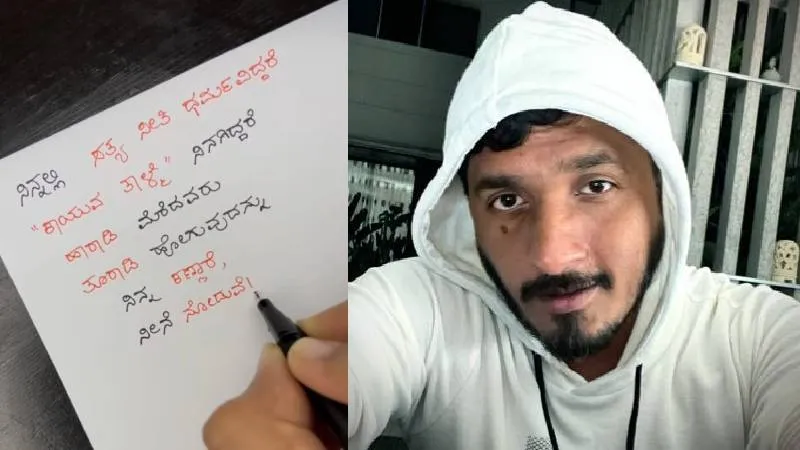 ನಿನ್ನಲ್ಲಿ ಸತ್ಯ ನೀತಿ ಧರ್ಮವಿದ್ದರೆ
"ಕಾಯುವ ತಾಳ್ಮೆ" ನಿನಗಿದ್ದರೆ
ಹಾರಾಡಿ ಮೆರೆದವರು
ತೂರಾಡಿ ಹೋಗುವುದನ್ನು
ನಿನ್ನ ಕಣ್ಣಾರೆ,
ನೀನೆ ನೋಡುವೆ!